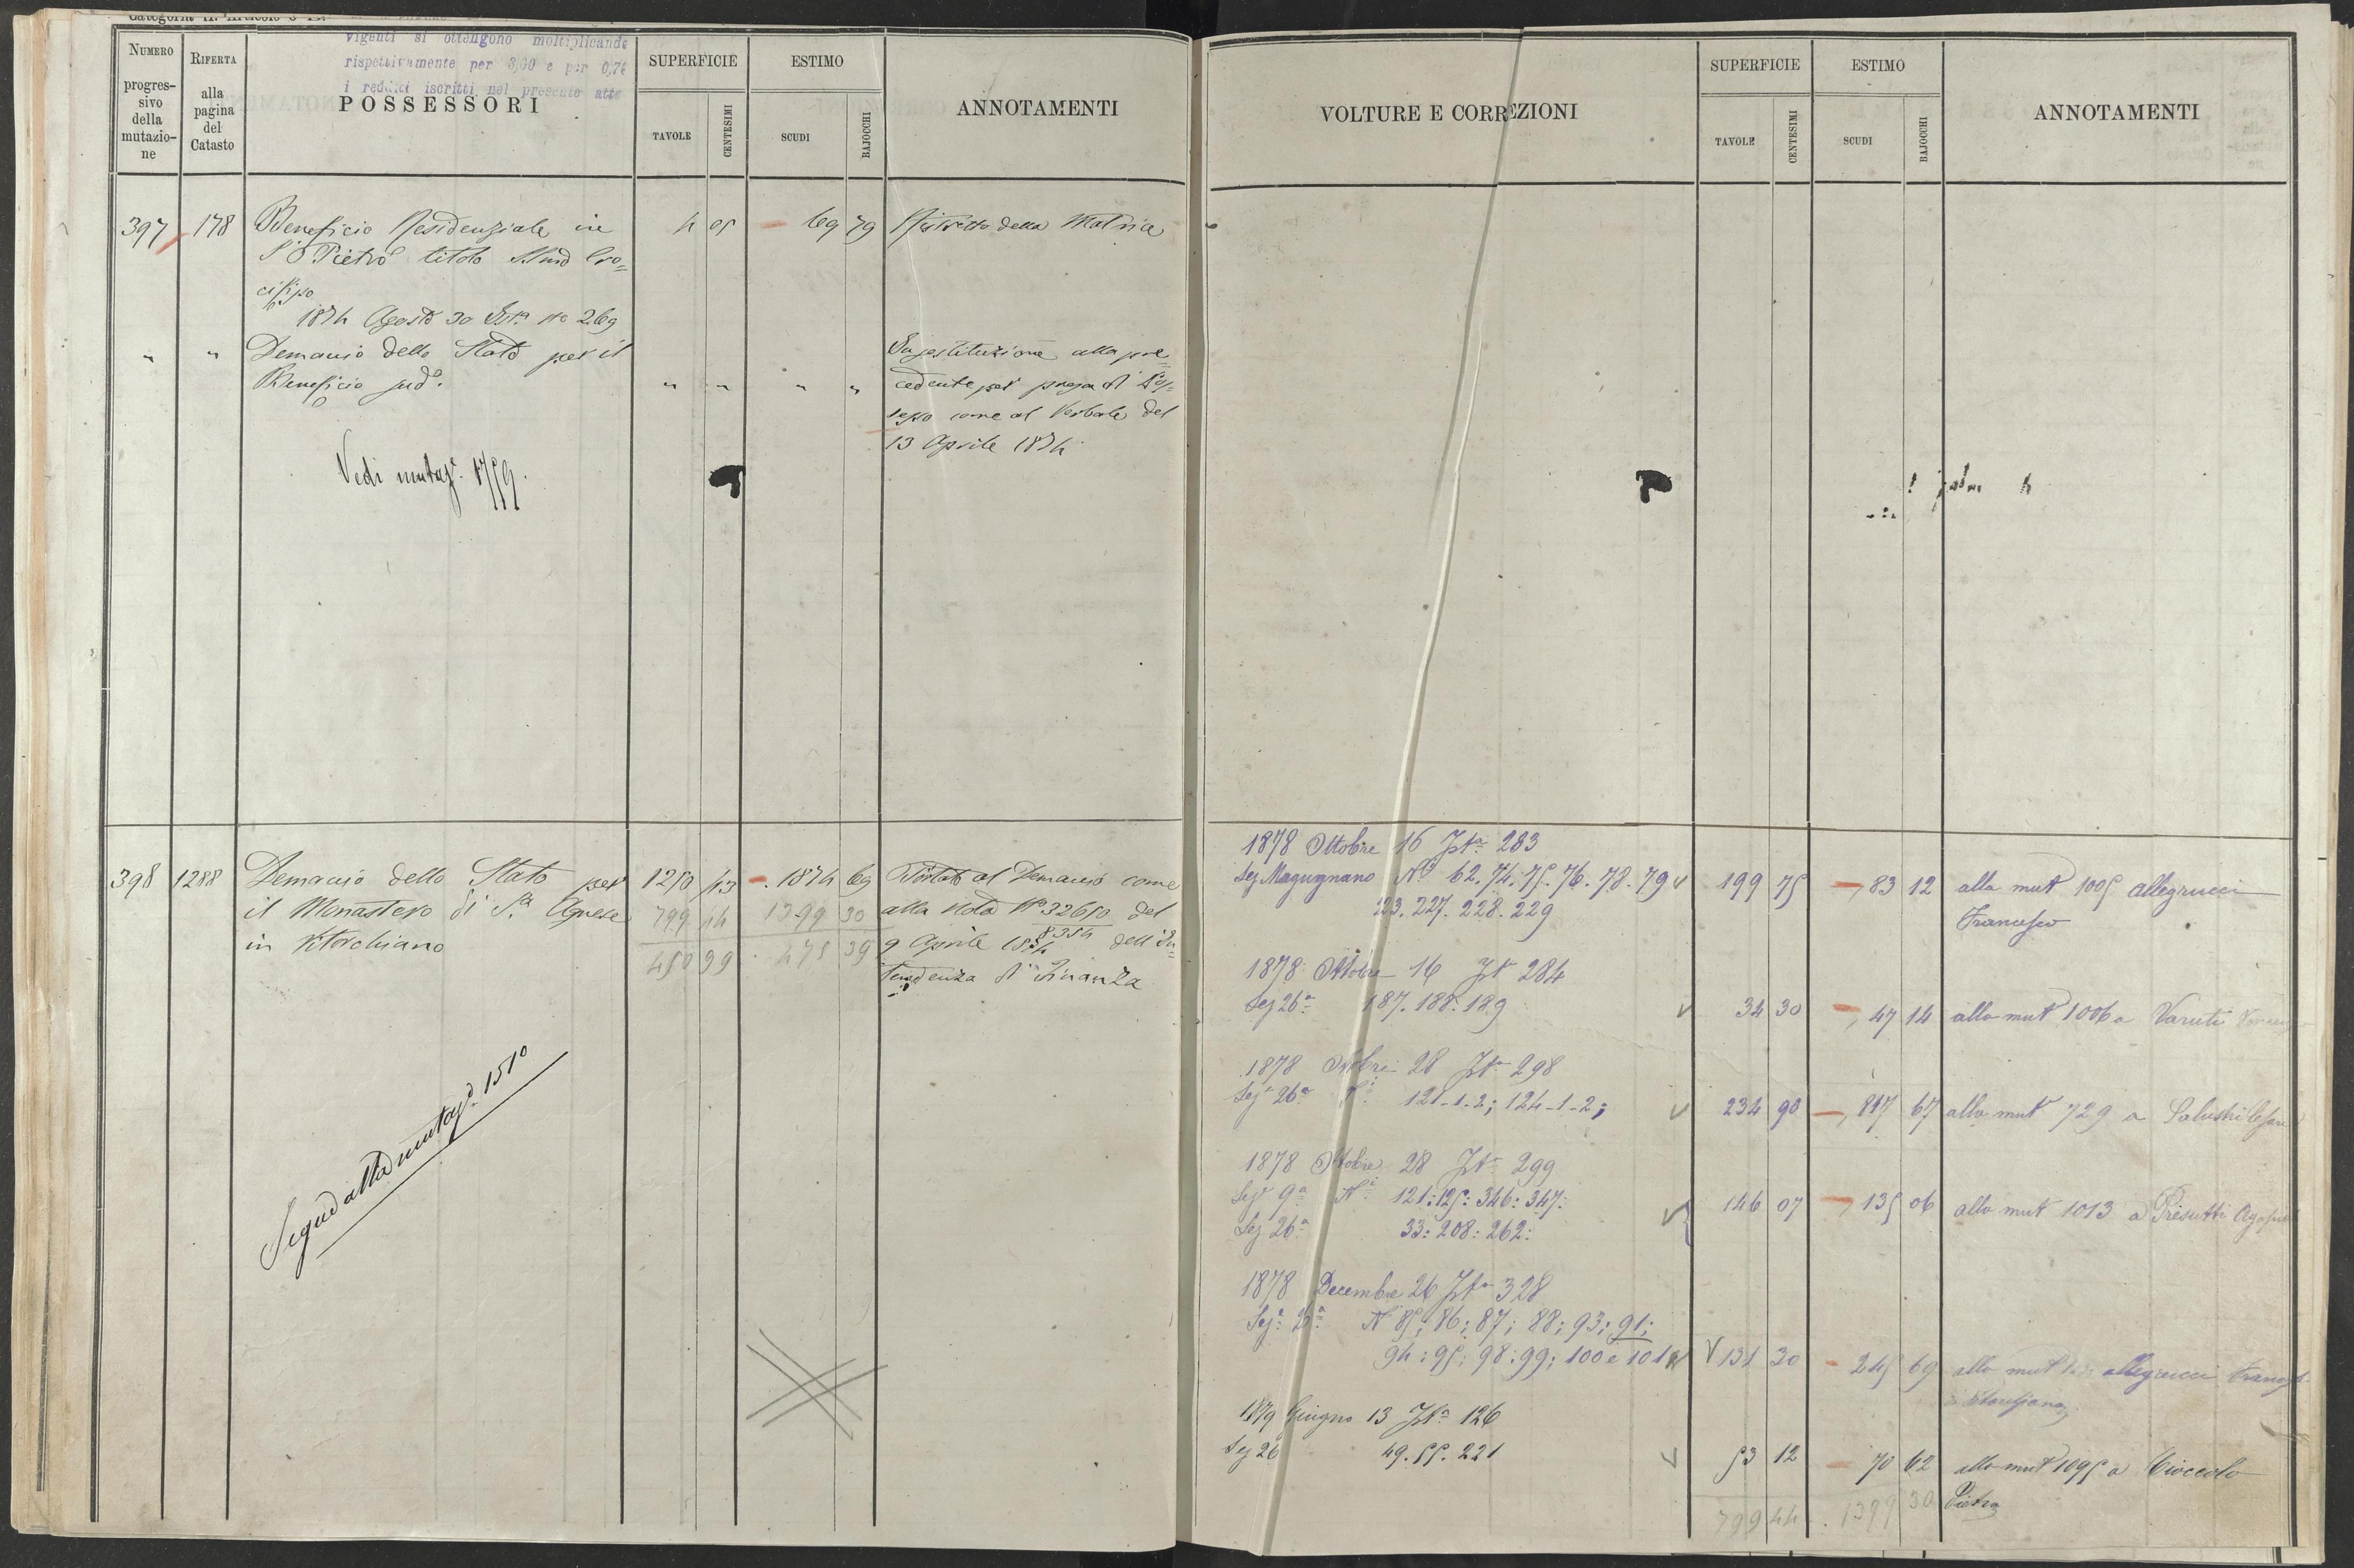 vigenti si ottengono moltiplicando
rispettivamente per 3,00 e per 0,74
i redditi iscritti nel presente atto
NUMERO progressivo della mutazione
RIFERTA alla pagina del Catasto
POSSESSORI
SUPERFICIE
TAVOLE
CENTESIMI
ESTIMO
SCUDI
BAJOCCHI
ANNOTAMENTI
397 178 Beneficio Residenziale in 4 05 69 79 Ristretto della Matrice
S. Pietro titolo
1874 Agosto 30 Ista No 269
" " Demanio dello Stato per il In sostituzione alla pre=
Beneficio sudo. " " " " cedente per presa di Pos=
sesso come al Verbale del
13 Aprile 1874
Vedi mutaz. 1759.
398 1288 Demanio dello Stato per 1250 43 1874 69 al Demanio come
il Monastero di Sa Agnese 799 44 1399 30 alla Nota No 32650 del
in Vitorchiano 450 99 475 39 9 Aprile 1874 8354 dell'In=
tendenza di Finanza
Segue alla mutazo. 1510
VOLTURE E CORREZIONI
SUPERFICIE
TAVOLE
CENTESIMI
ESTIMO
SCUDI
BAJOCCHI
ANNOTAMENTI
1878 Ottobre 16 Ista 283
Sez Magugnano Ni 62. 74. 75. 76. 78. 79 199 75 83 12 alla mut 1005 Allegrucci
223. 227. 228. 229 Francesco
1878 Ottobre 16 Ista 284
Sez 26a 187. 188. 189 34 30 47 14 alla mut 1006 a Varuti
1878 Ottobre 28 Ista 298
Sez 26a Ni 121-1-2; 124-1-2; 234 90 817 67 alla mut 729 a Salustri Cesare
1878 Ottobre 28 Ista 299
Sez 9a Ni 121: 125: 346: 347: 146 07 135 06 alla mut 1013 a Presutti Agapito
Sez 26a 33: 208: 262:
1878 Decembre 26 Ista 328
Sez. N 85; 86; 87; 88; 93; 91;
94; 95; 98; 99; 100 e 101 131 30 245 69 alla mut Allegrucci Francesco
1879 Giugno 13 Ista 126
Sez 26 49. 55. 221 53 12 70 62 alla mut 1095 a Cioccolo
799 44 1399 30 Pietro